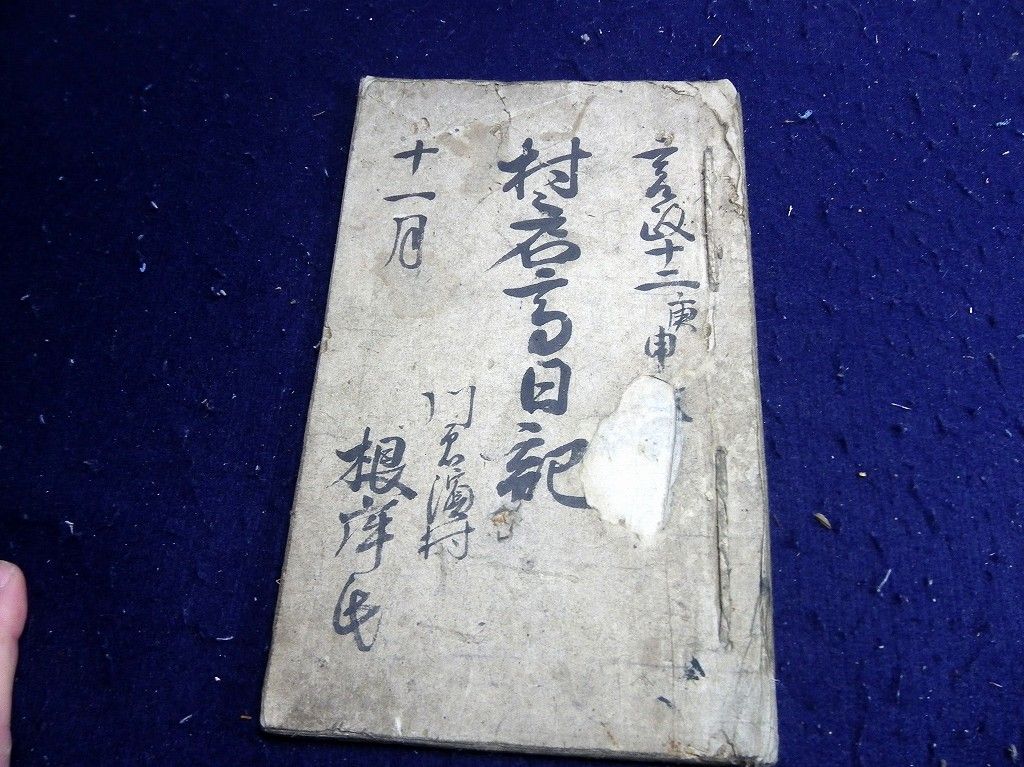 寛政十二庚申
村名高日記
十一月
川名濱村
根岸氏